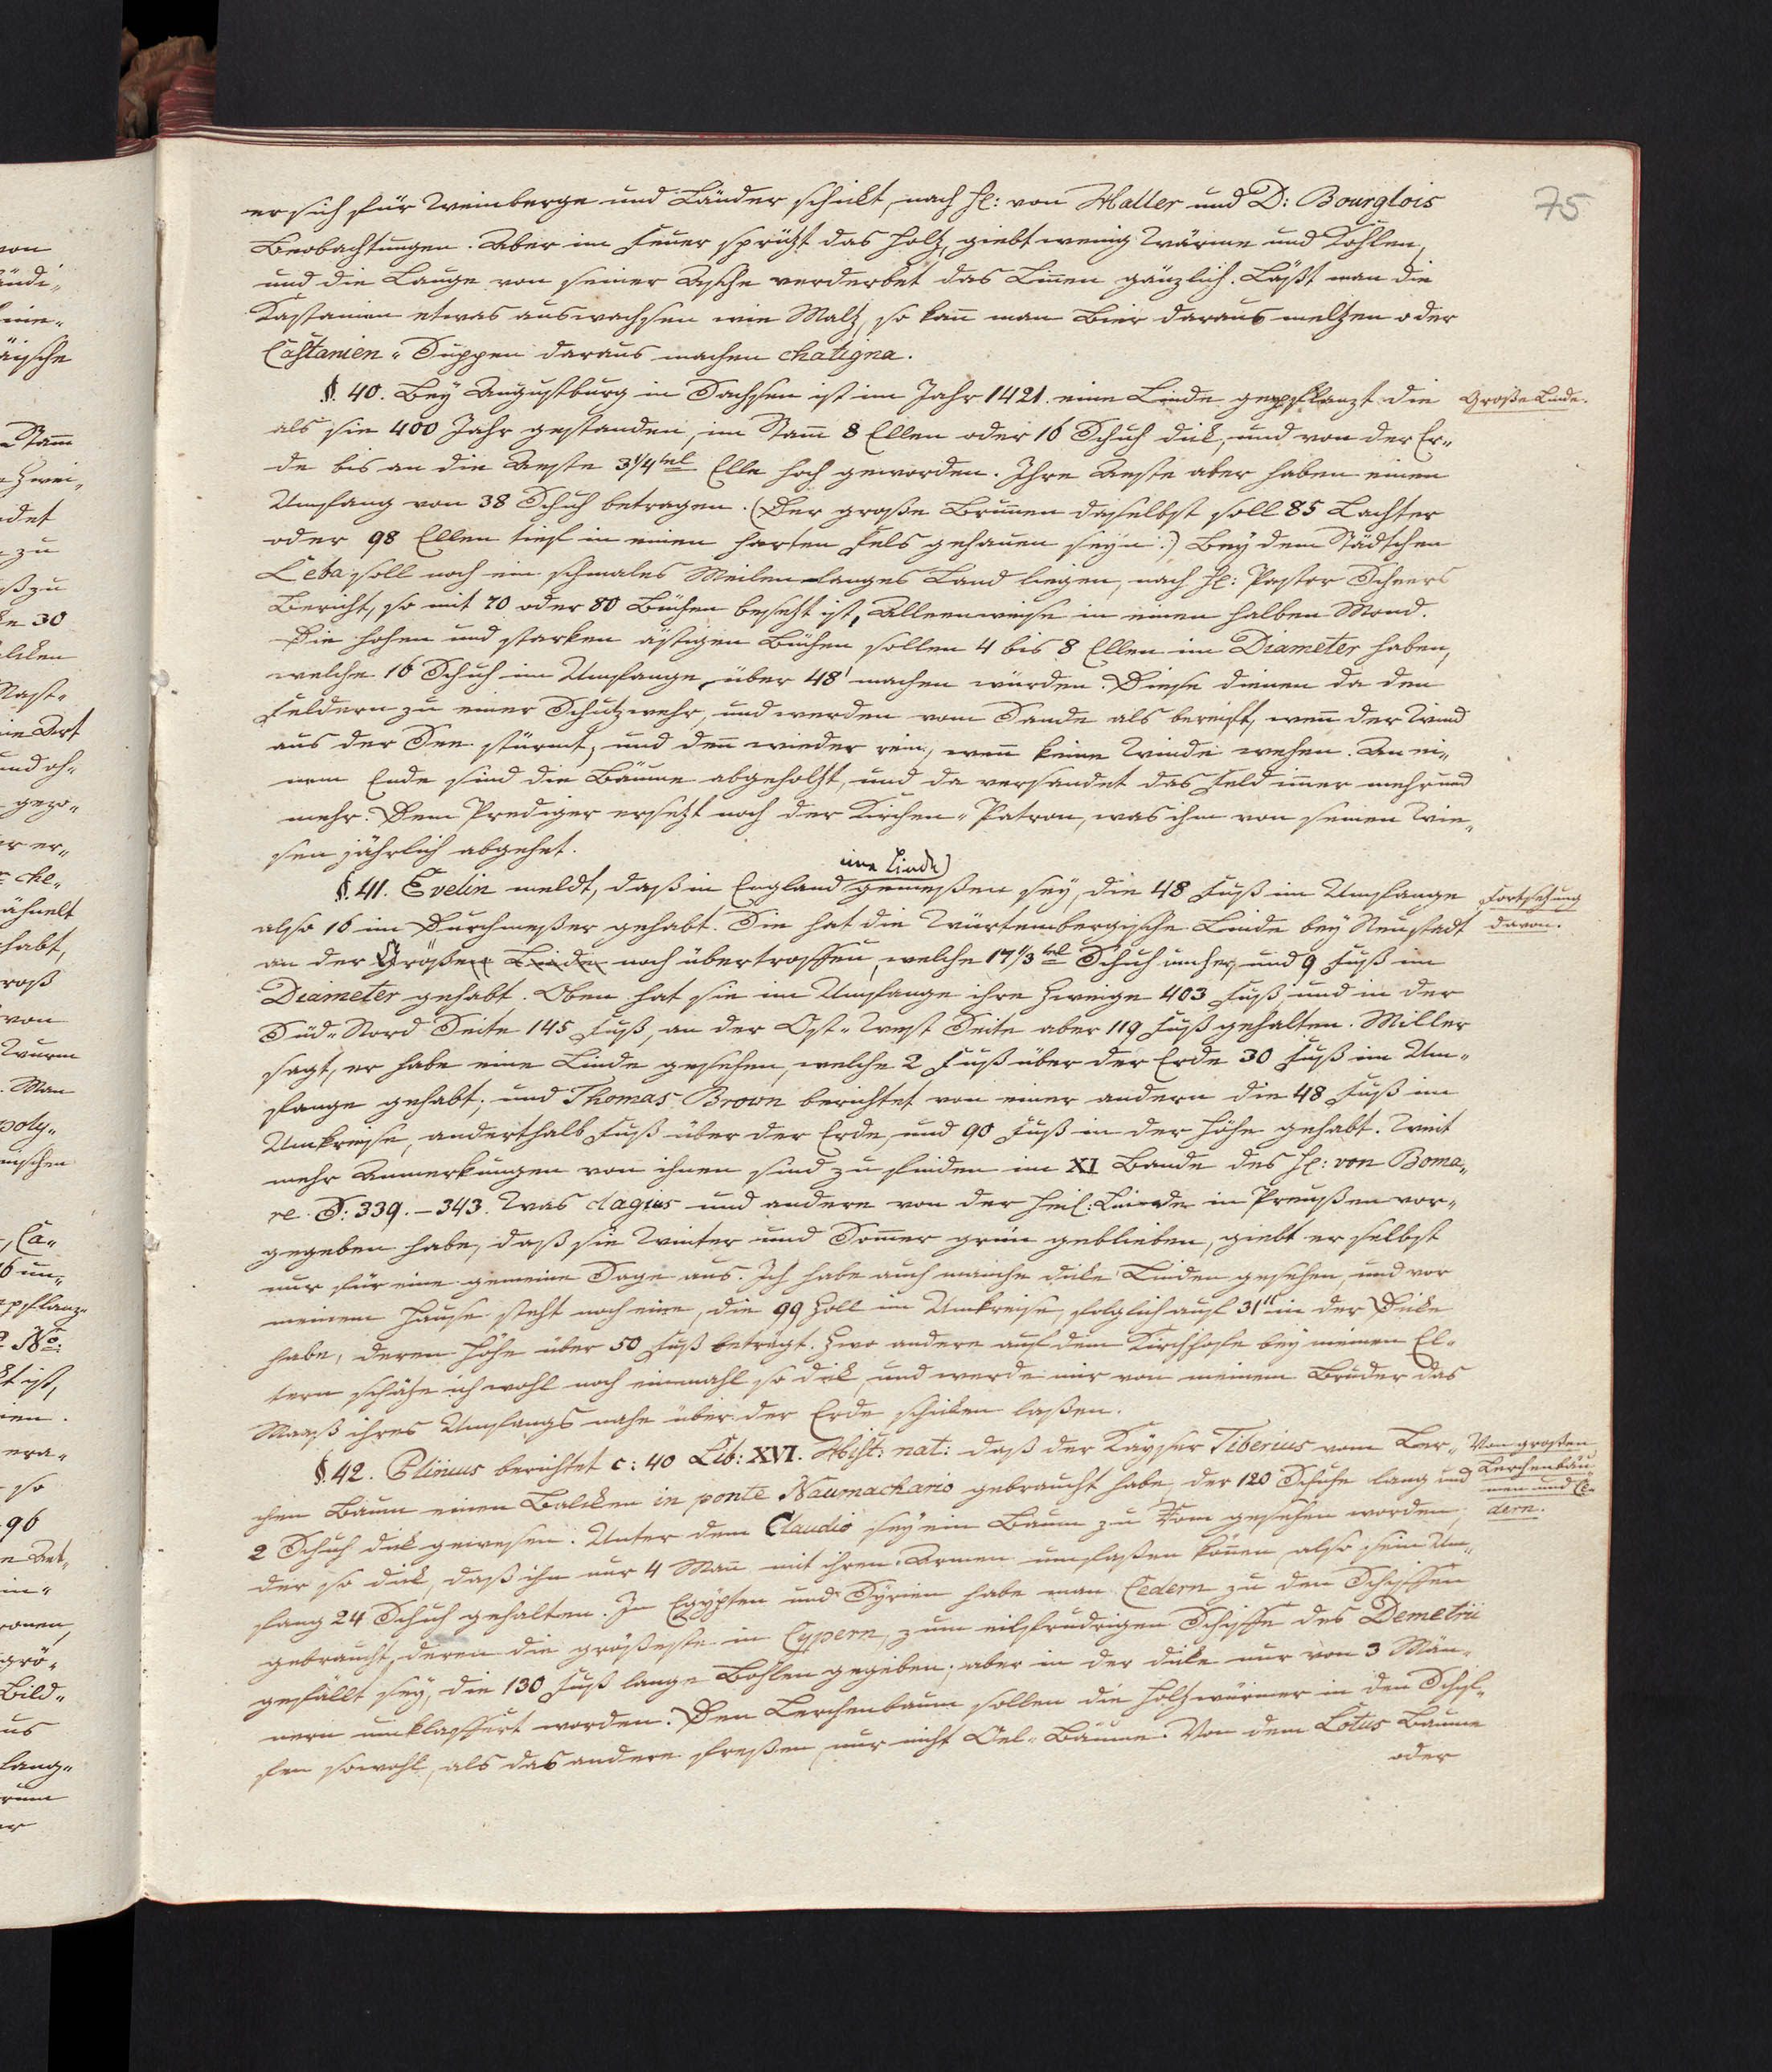 75
er sich für Weinberge und Länder schickt, nach H: von Haller und D: Bourglois
Beobachtungen. Aber im Feuer sprützt das Holtz, giebt wenig Wärme und Kohlen,
und die Lauge von seiner Asche verderbet das Linnen gänzlich. Läßt man die
Kastanien etwas auswachsen wie Maltz, so kañ man Bier daraus meltzen oder
Castanien-Suppen daraus machen chatigna.
§. 40. Bey Augustburg in Sachsen ist im Jahr 1421. eine Linde gepflanzt die
Große Linde.
als sie 400 Jahr gestanden, im Stam̄ 8 Ellen oder 16 Schuh dick, und von der Er-
de bis an die Aeste 3¼tel Elle hoch geworden. Ihre Aeste aber haben einen
Umfang von 38 Schuh betragen. (Der große Brunnen daselbst soll 85 Lachter
oder 98 Ellen tief in einen harten Fels gehauen seyn.) Bey dem Städtchen
Leba soll noch ein schmales Meilen langes Land liegen, nach H: Pastor Scheers
Bericht, so mit 70 oder 80 Büchen besetzt ist, Alleenweise in einen halben Mond.
Die hohen und starken ästigen Büchen sollen 4 bis 8 Ellen im Diameter haben,
welche 16 Schuh im Umfange über 48' machen würden. Diese dienen da den
Feldern zu einer Schutzwehr, und werden vom Sande als bereift, weñ der Wind
aus der See stürmt, und deñ wieder rein, weñ keine Winde wehen. An ei-
nem Ende sind die Bäume abgeholtzt, und da versandet das Feld im̄er mehr und
mehr. Dem Prediger ersetzt noch der Kirchen-Patron, was ihm von seinen Wie-
sen jährlich abgehet.
eine Linde)
§. 41. Evelin meldt, daß in England gemeßen sey, die 48 Fuß im Umfange
Fortsetzung
also 16 im Durchmeßer gehabt. Sie hat die Würtembergische Linde bey Neustadt
davon.
an der Größen Linden noch übertroffen, welche 17⅓tel Schuh umher, und 9 Fuß im
Diameter gehabt. Oben hat sie im Umfange ihre Zweige 403 Fuß, und in der
Süd-Nord Seite 145 Fuß, an der Ost-West Seite aber 119 Fuß gehalten. Miller
sagt, er habe eine Linde gesehen, welche 2 Fuß über der Erde 30 Fuß im Um-
fange gehabt; und Thomas Brown berichtet von einer andern die 48 Fuß im
Umkreise, anderthalb Fuß über der Erde, und 90 Fuß in der Höhe gehabt. Weit
mehr Anmerkungen von ihnen sind zu finden im XI Bande des H: von Boma-
re S: 339. – 343. Was clagius und andere von der Heil: Linde in Preußen vor-
gegeben habe, daß sie Winter und Som̄er grün geblieben, giebt er selbst
nur für eine gemeine Sage aus. Ich habe auch manche dicke Linden gesehen, und vor
meinem Hause steht noch eine, die 99 Zoll im Umkreise, folglich auf 31" in der Dicke
habe, deren Höhe über 50 Fuß beträgt. Zwo andere auf dem Kirchhofe bey meinen El-
tern schätze ich wohl noch einmahl so dick, und werde mir von meinem Bruder das
Maaß ihres Umfangs nahe über der Erde schicken laßen.
§. 42. Plinius berichtet c: 40 Lib: XVI. Hist: nat: daß der Kayser Tiberius vom Ler-
Von großen
chen Baum einen Balcken in ponte Naumachario gebraucht habe, der 120 Schuhe lang und
Lerchenbäu-
men und Ce-
2 Schuh dick gewesen. Unter dem Claudio sey ein Baum zu Rom gesehen worden,
dern.
der so dick, daß ihn nur 4 Mañ mit ihren Armen umfaßen köñen, also sein Um-
fang 24 Schuh gehalten. In Egypten und Syrien habe man Cedern zu den Schiffen
gebraucht, deren die größeste in Cypern, zum eilfrudrigen Schiffe des Demetrii
gefällt sey, die 130 Fuß lange Bohlen gegeben; aber in der dicke nur von 3 Män-
nern umklaffert worden. Den Lerchenbaum sollen die Holtzwürmer in den Schif-
fen sowohl, als das andere freßen, nur nicht Oel-Bäume. Von dem Lotus Baume
oder